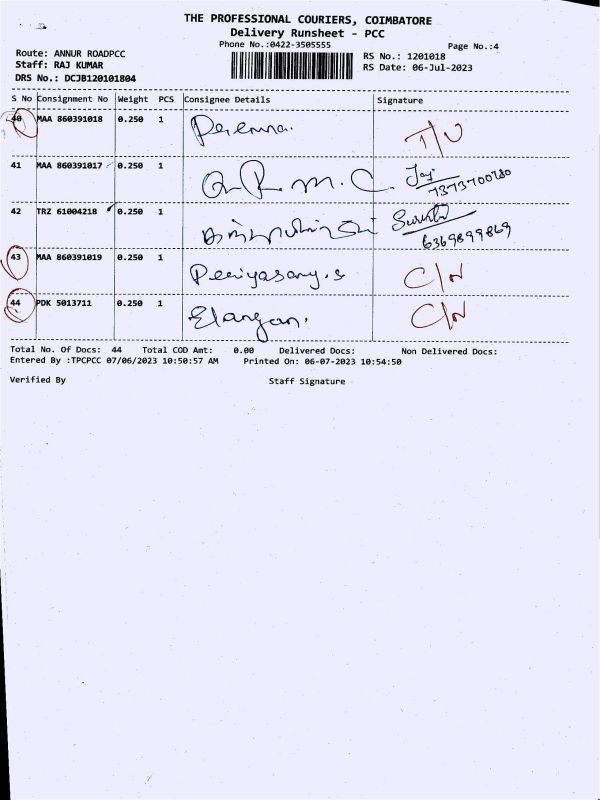 THE PROFESSIONAL COURIERS, COIMBATORE
Delivery Runsheet - PCC
Phone No.:0422-3505555
Page No.:4
Route: ANNUR ROADPCC
Staff: RAJ KUMAR
DRS No.: DCJB120101804
RS No.: 1201018
RS Date: 06-Jul-2023
S No Consignment No Weight PCS Consignee Details Signature
40 MAA 860391018 0.250 1 T/U
41 MAA 860391017 0.250 1 R. M. C. 7373700780
42 TRZ 61004218 0.250 1 6369899869
43 MAA 860391019 0.250 1 Periyasamy.s C/N
44 PDK 5013711 0.250 1 Elangan. C/N
Total No. Of Docs: 44 Total COD Amt: 0.00 Delivered Docs: Non Delivered Docs:
Entered By :TPCPCC 07/06/2023 10:50:57 AM Printed On: 06-07-2023 10:54:50
Verified By Staff Signature